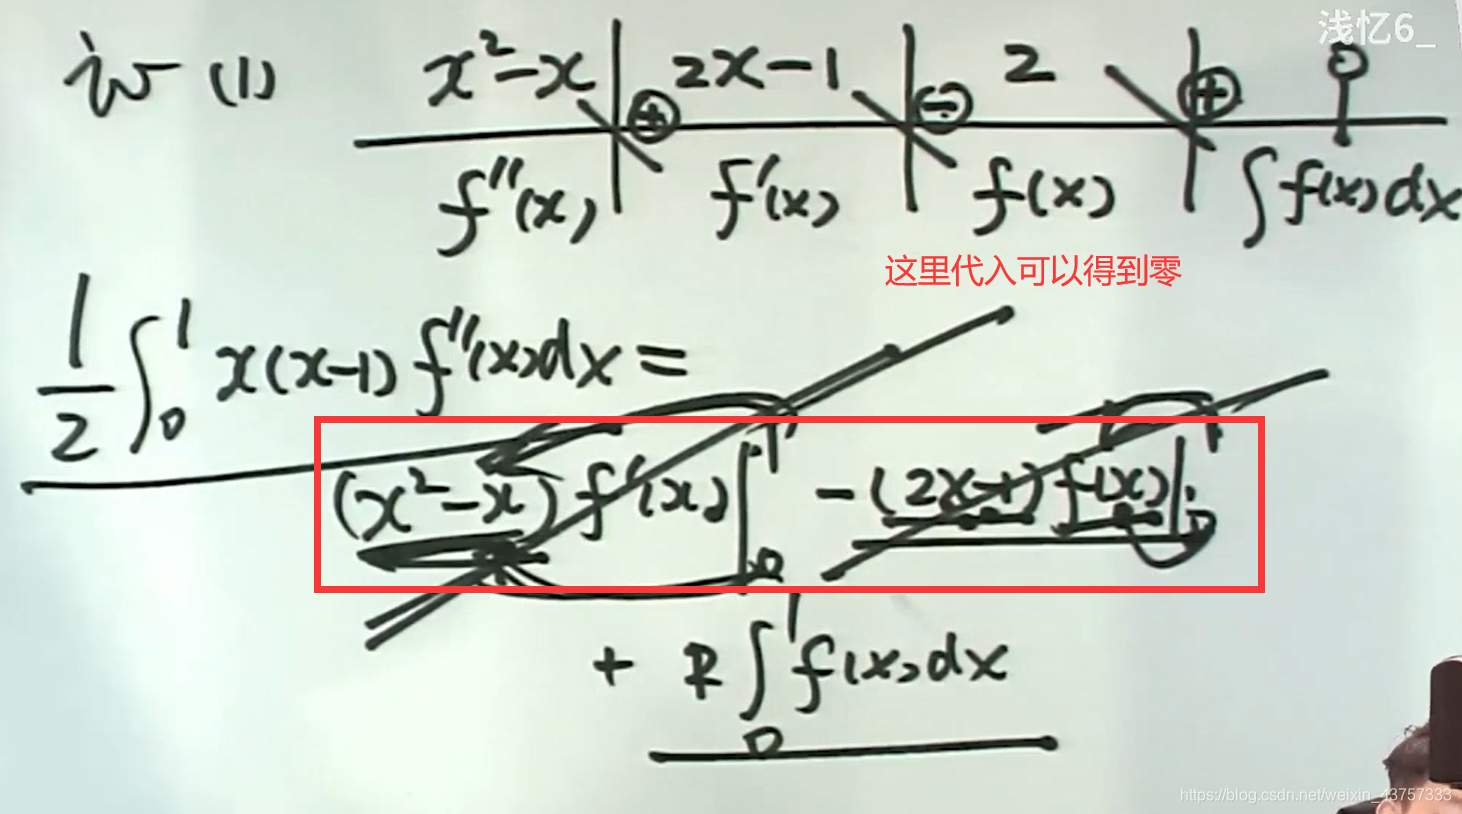 浅忆6_
证 (1) x²-x | ⊕ 2x-1 | ⊖ 2 | ⊕ 0
f''(x) | f'(x) | f(x) | ∫f(x)dx
这里代入可以得到零
1/2 ∫₀¹ x(x-1) f''(x)dx =
(x²-x) f'(x)|₀¹ - (2x-1) f(x)|₀¹
+ 2∫₀¹ f(x)dx
https://blog.csdn.net/weixin_43757333